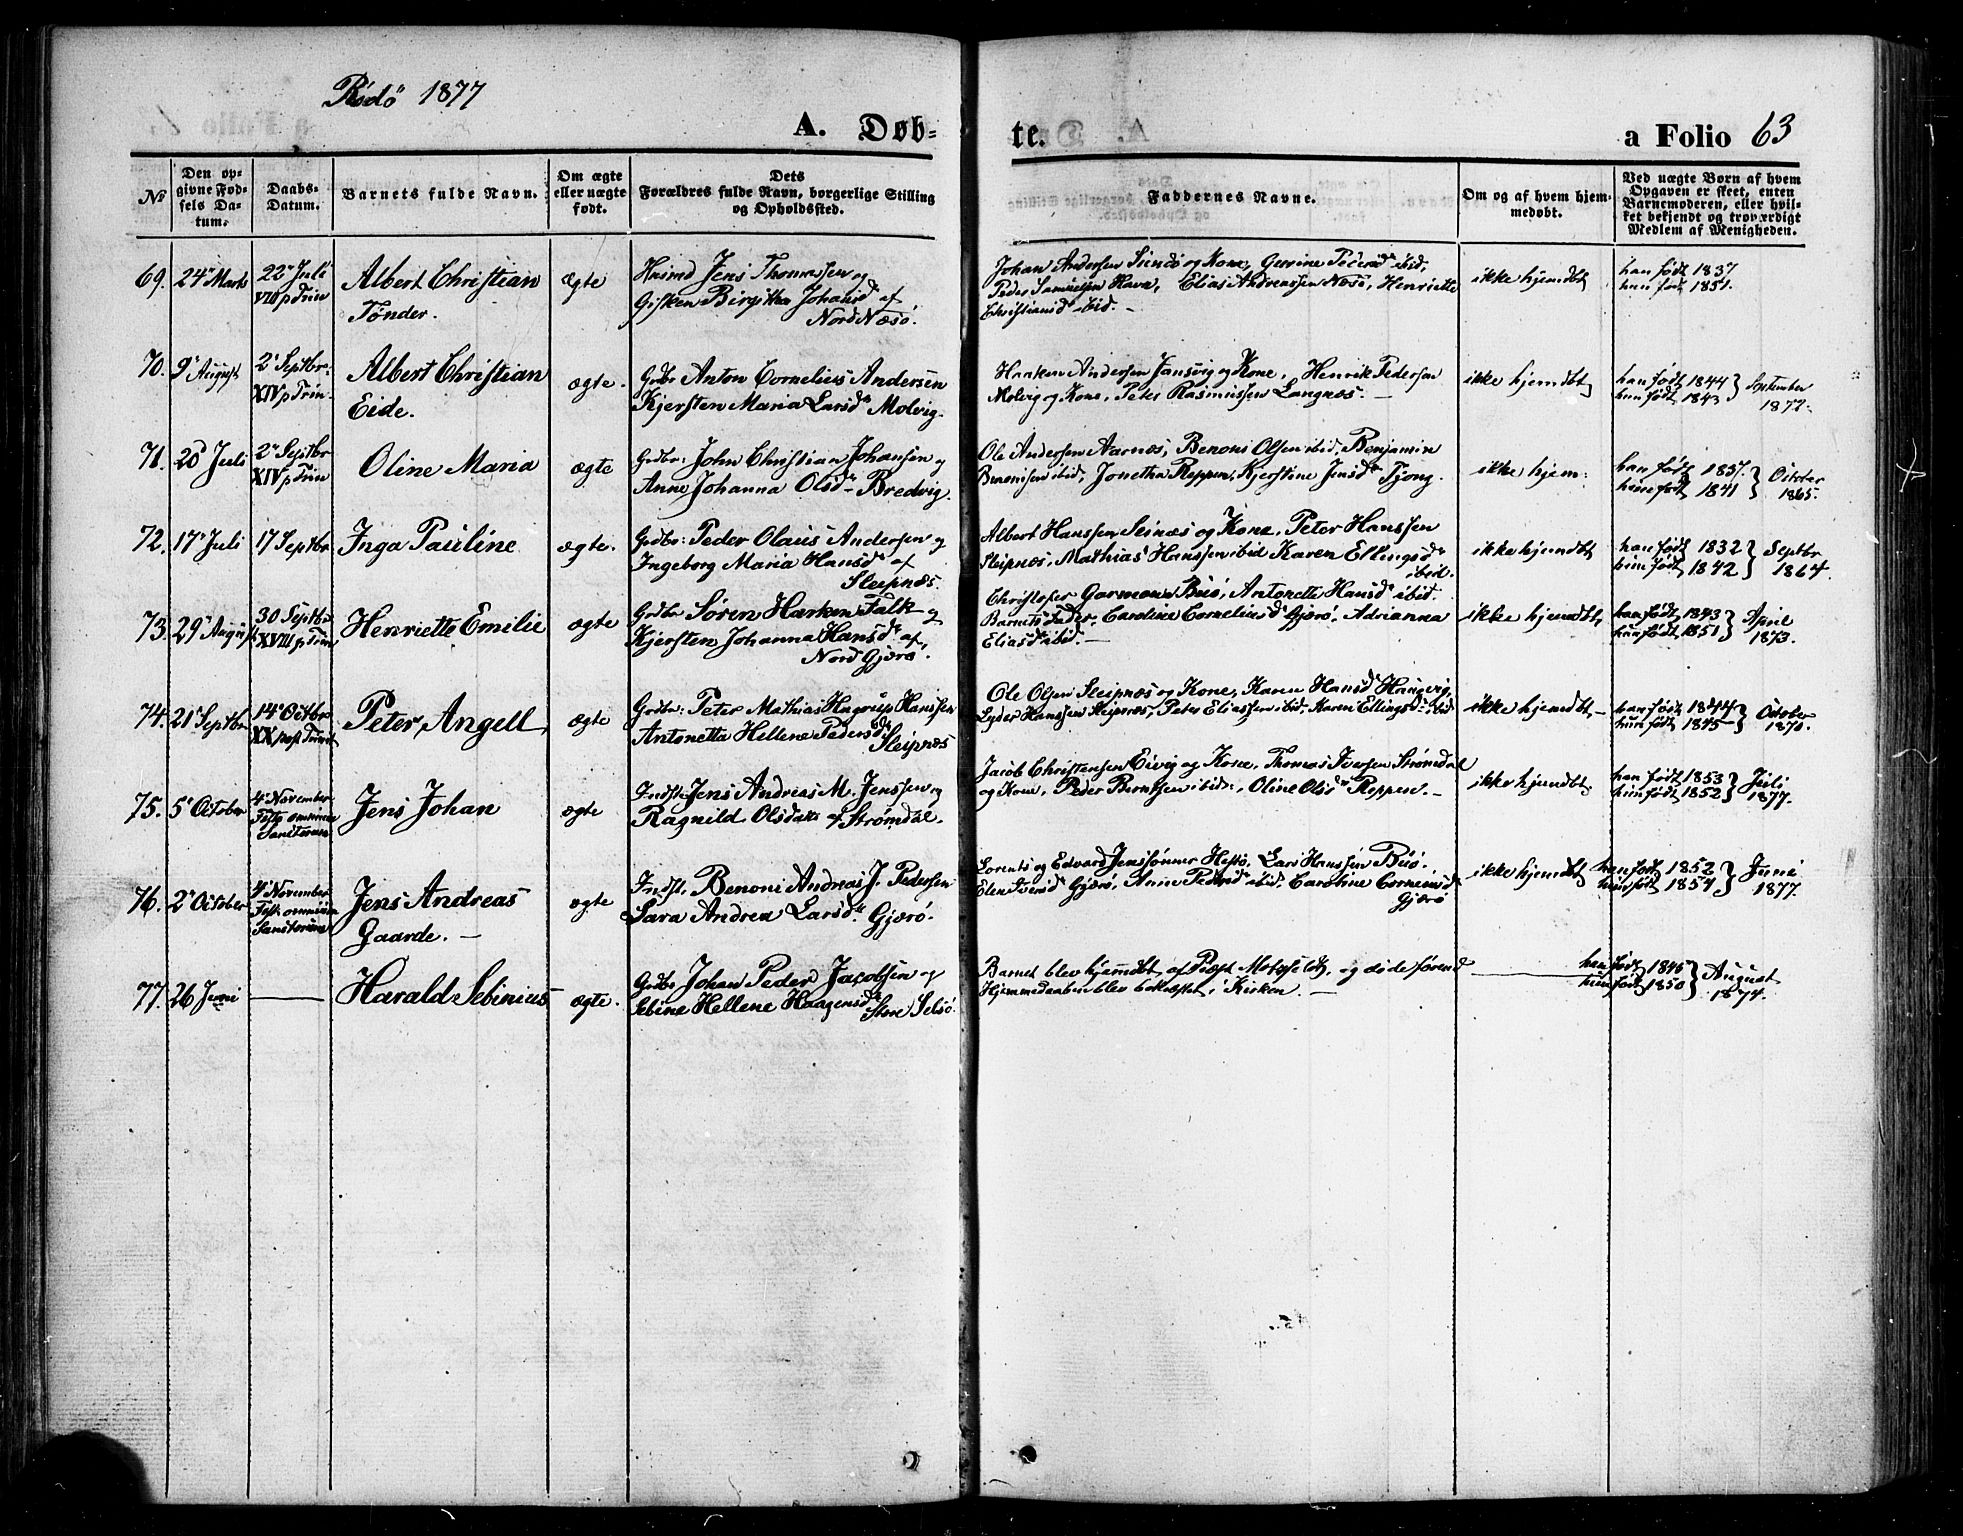 Rödö 1877
A. Døb-
te.
a Folio 63
No
Den op-
givne Fød-
sels Da-
tum.
Daabs-
Datum.
Barnets fulde Navn.
Om ægte
eller uægte
født.
Dets
Forældres fulde Navn, borgerlige Stilling
og Opholdssted.
Faddernes Navne.
Om og af hvem hjem-
medøbt.
Ved uægte Børn af hvem
Opgaven er skeet, enten
Barnemoderen, eller hvil-
ket bekjendt og troværdigt
Medlem af Menigheden.
69. 24 Marts
22 Juli
VIII p Trin
Albert Christian
Tønder.
ægte
Husmd Jens Thomassen og
Gisken Birgitha Johansd af
Nord Næsö.
Johan Andersen og Kone, ibid,
Peder Samuelsen Elias Andreassen Henriette
Christiansd ibid. -
ikke hjemdbt
han født 1837
hun født 1851.
70. 9 August
2 Septbr.
XIV p Trin.
Albert Christian
Eide.
ægte.
Grdbr Anton Cornelius Andersen
Kjersten Maria Larsd Molvig.
Haaken Andersen og Kone, Henrik Pedersen
Molvig og Kone, Peter Rasmussen Langnæs. -
ikke hjemdbt
han født 1844
hun født 1843 } September
1872.
71. 20 Juli
2 Septbr
XIV p Trin
Oline Maria
ægte
Grdbr: John Christian Johansen og
Anne Johanna Olsd - Bredvig.
Ole Andersen Aarnæs, Benoni Olsen ibid, Benjamin
ibid, Jonetha Reppen, Kjerstine Jensd Tjong.
ikke hjem:
han født 1837.
hun født 1841 } October
1865.
72. 17 Juli
17 Septbr
Inga Pauline
ægte.
Grdbr: Peder Olaus Andersen og
Ingeborg Maria Hansd af
Sleipnæs.
Albert Hanssen Seinæs og Kone, Peter Hanssen
Sleipnæs, Mathias Hanssen ibid Karen Ellingsd
ibid.
ikke hjemdbt
han født 1832
hun født 1842 } Septbr
1864.
73. 29 August
30 Septbr
XVIII p Trin
Henriette Emilie
ægte
Grdbr Sören Harken Falk og
Kjersten Johanna Hansd af
Nord Gjærö.
Christofer Garmann Buö, Antonette Hansd ibid.
Barnets Fader, Caroline Cornelius Gjærö, Adrianna
Eliasd ibid. -
ikke hjemdbt,
han født 1843
hun født 1851 } April
1873.
74. 21 Septbr
14 Octbr
XX post Trinit
Peter Angell
ægte
Grdbr: Peter Mathias Hagrup Hanssen
Antonetta Hellene Pedersd
Sleipnæs
Ole Olsen Sleipnæs og Kone, Karen Hansd
Lyder Hanssen Sleipnæs, Peter Eliassen ibid, Karen Ellingsd ibid
ikke hjemdbt, -
han født 1844
hun født 1845 } October
1870.
75. 5 October
4 November
Festo omnium
Sanctorum
Jens Johan
ægte
Indst: Jens Andreas M. Jenssen og
Ragnild Olsdatt: af Strömdal.
Jacob Christensen og Kone, Thomas Iversen Strömdal
og Kone, Peder ibid:, Oline Olsd Reppen. -
ikke hjemdbt.
han født 1853
hun født 1852 } Juli
1877.
76. 2 October
4 November
Fest: omnium
Sanctorum
Jens Andreas
Gaarde. -
ægte
Indst. Benoni Andreas J. Pedersen
Sara Andrea Larsd Gjærö.
Lorents og Edvard Jenssönner Hestö, Lars Hanssen Buö.
Gjærö, Anne Pedersd ibid, Caroline Corneliusd
Gjærö
ikke hjemdbt
han født 1852
hun født 1854 } Juni
1877.
77. 26 Juni
Harald Sebinius
ægte.
Grdbr Johan Peder Jacobsen og
Sebine Hellene Haagensd
Store Selsö.
Barnet blev hjemdbt af Præst og døde förend
Hjemmedaaben blev bekræftet i Kirken. -
han født 1845
hun født 1850 } August
1874.